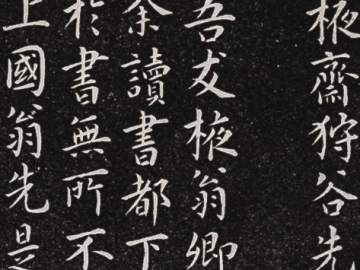 棭齋狩谷先
吾友棭翁卿
余讀書都下
於書無所不
上國翁先是